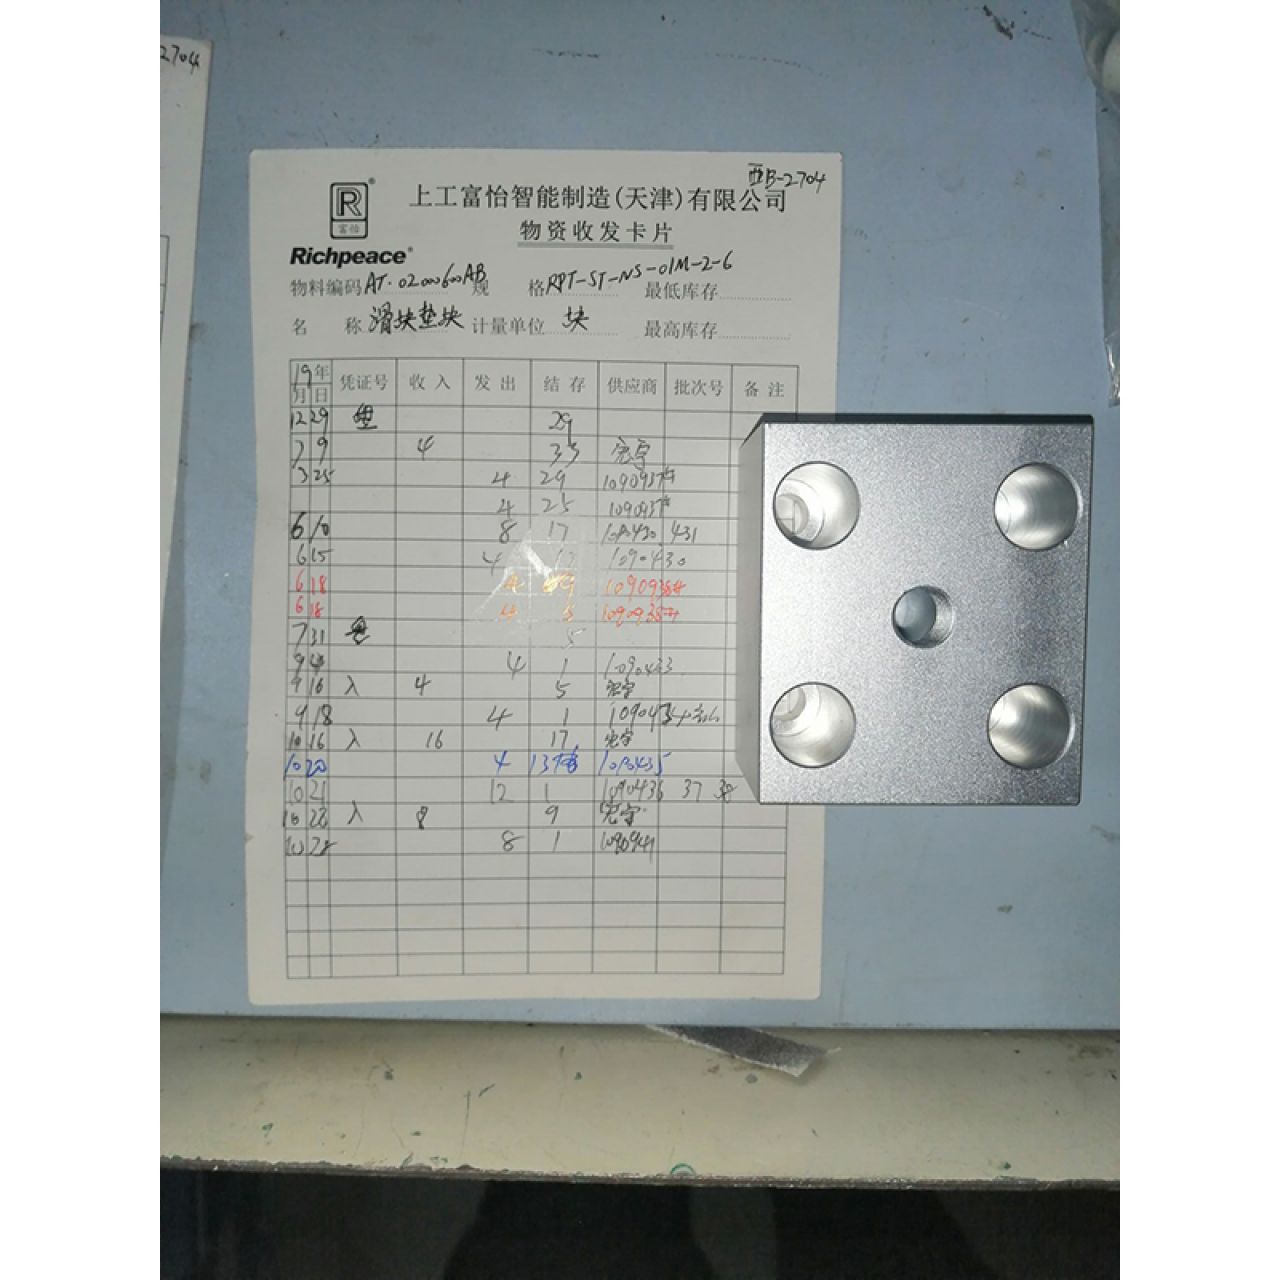 2704
西B-2704
R®
富怡
Richpeace®
上工富怡智能制造(天津)有限公司
物资收发卡片
物料编码 AT·02000600AB 规 格 RPT-ST-NS-01M-2-6 最低库存
名 称 滑块垫块 计量单位 块 最高库存
19年 月 日 凭证号 收入 发出 结存 供应商 批次号 备注
12 29 29
7 9 4 33
3 25 4 29 1090937#
4 25 1090937#
6 10 8 17 1090430 431
6 15 4 1090430
6 18 4 9 1090938#
6 18 4 5 1090938#
7 31 5
9 4 4 1 1090433
9 16 入 4 5 宏宇
9 18 4 1
10 16 入 16 17 宏宇
10 20 4 13 1090435
10 21 12 1 1090436 37 38
10 22 入 8 9 宏宇
10 28 8 1